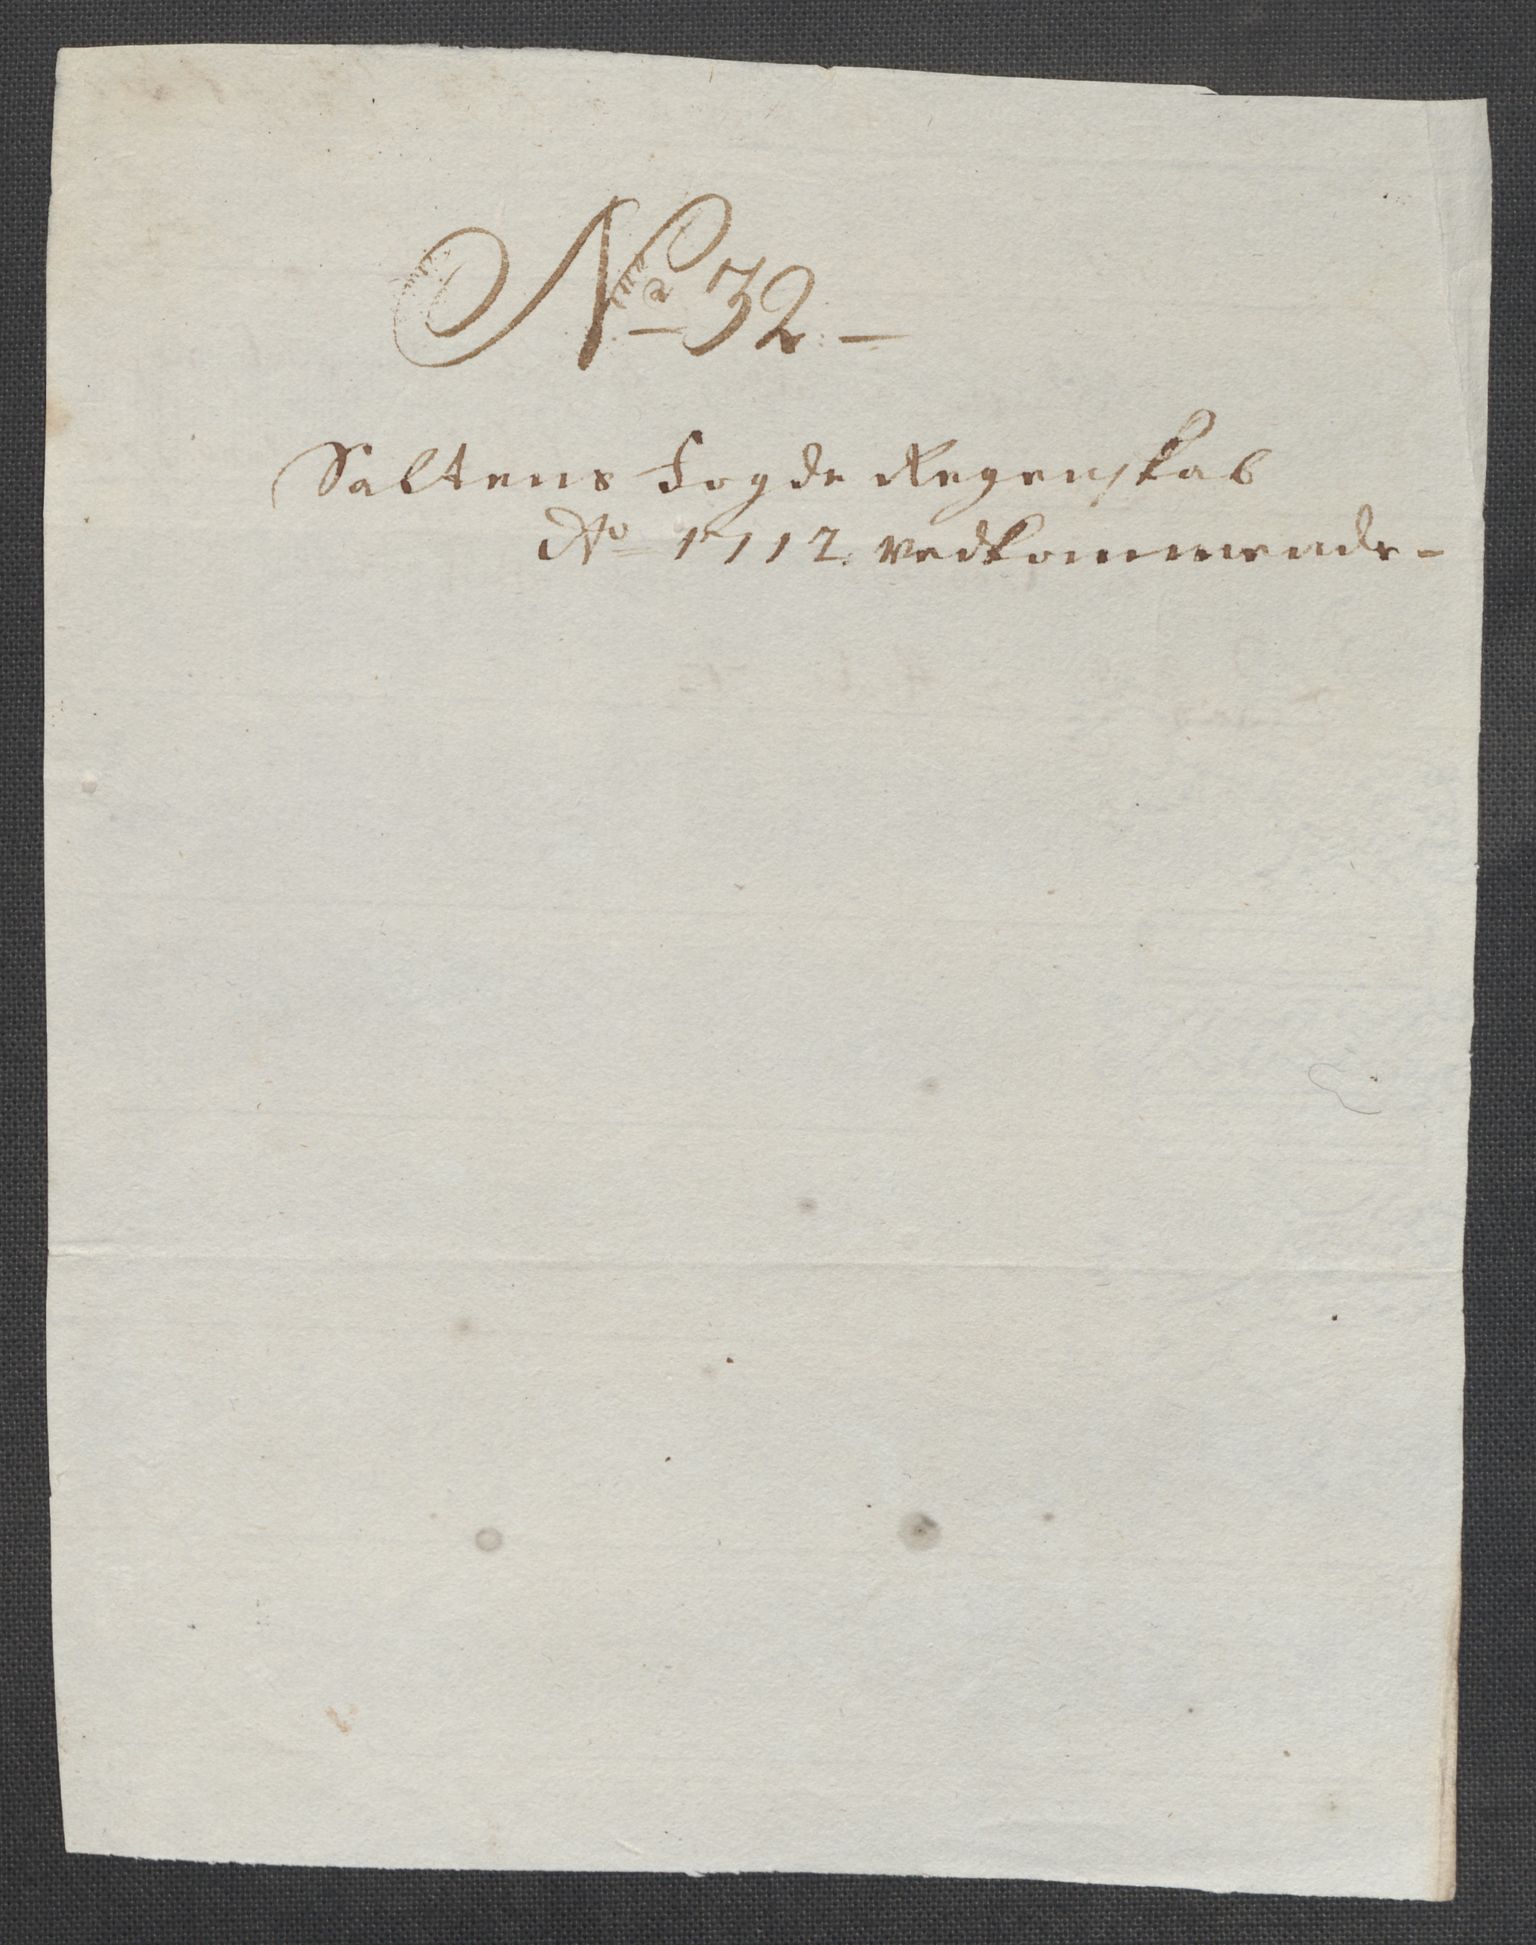 No 32 –
Saltens Fogde Regenskab
Ao 1712 vedkommende –